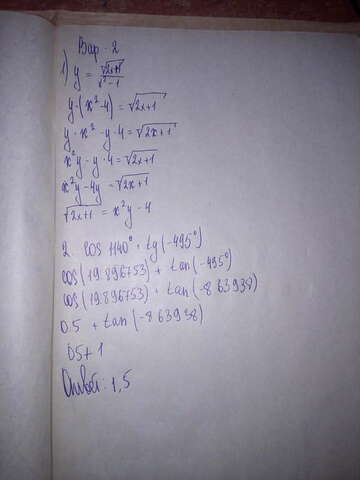 Вар - 2
1) y = √2x+1 / x² - 1
y · (x² - 4) = √2x+1
y · x² - y · 4 = √2x+1
x²y - y · 4 = √2x+1
x²y - 4y = √2x+1
√2x+1 = x²y - 4
2. cos 1140° + tg (-495°)
cos (19.896753) + tan (-495°)
cos (19.896753) + tan (-8 63938)
0.5 + tan (-8 63938)
05 + 1
Ответ: 1,5